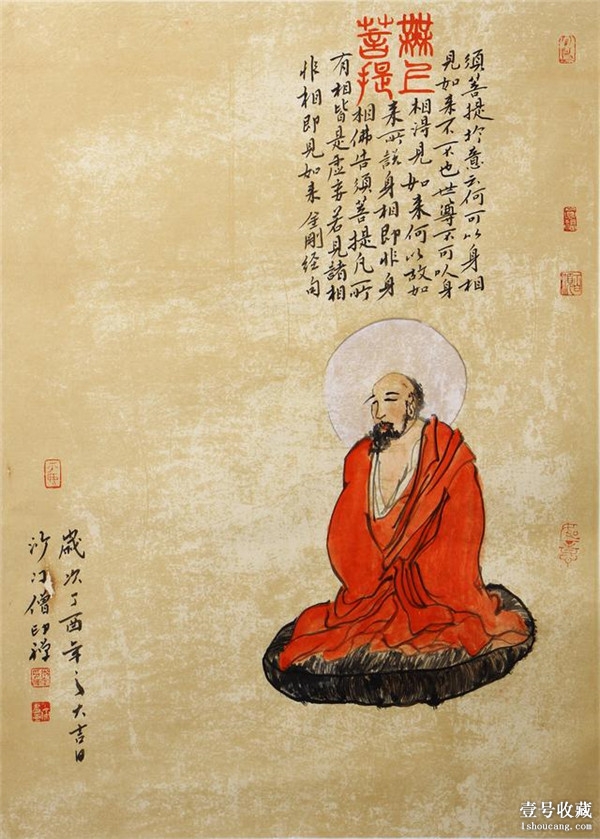 無上
菩提
須菩提於意云何可以身相
見如来不不也世尊不可以身
相得見如来何以故如
来所說身相即非身
相佛告須菩提凡所
有相皆是虛妄若見諸相
非相即見如来金剛经句
歲次丁酉年之大吉日
沙门僧印禅
如意
壹号收藏
1shoucang.com